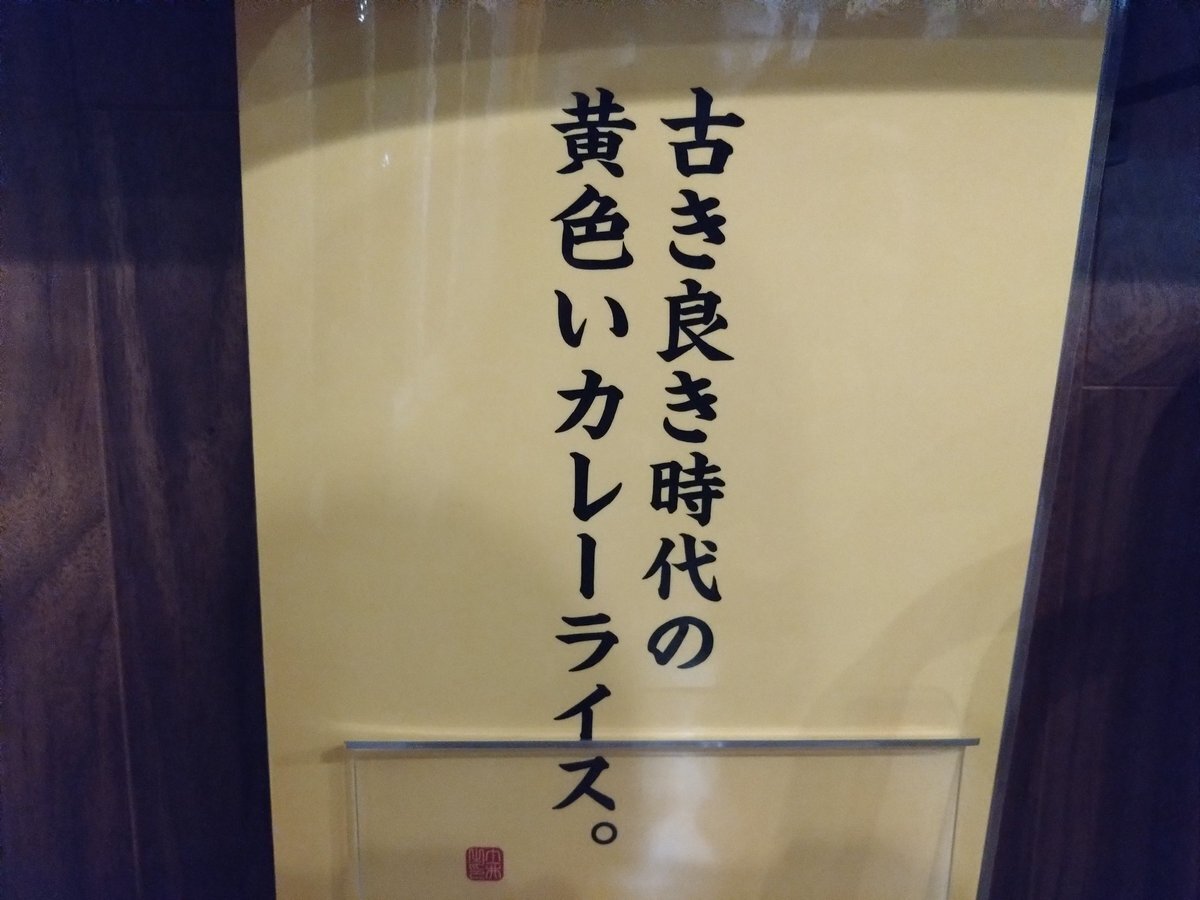 古き良き時代の
黄色いカレーライス。